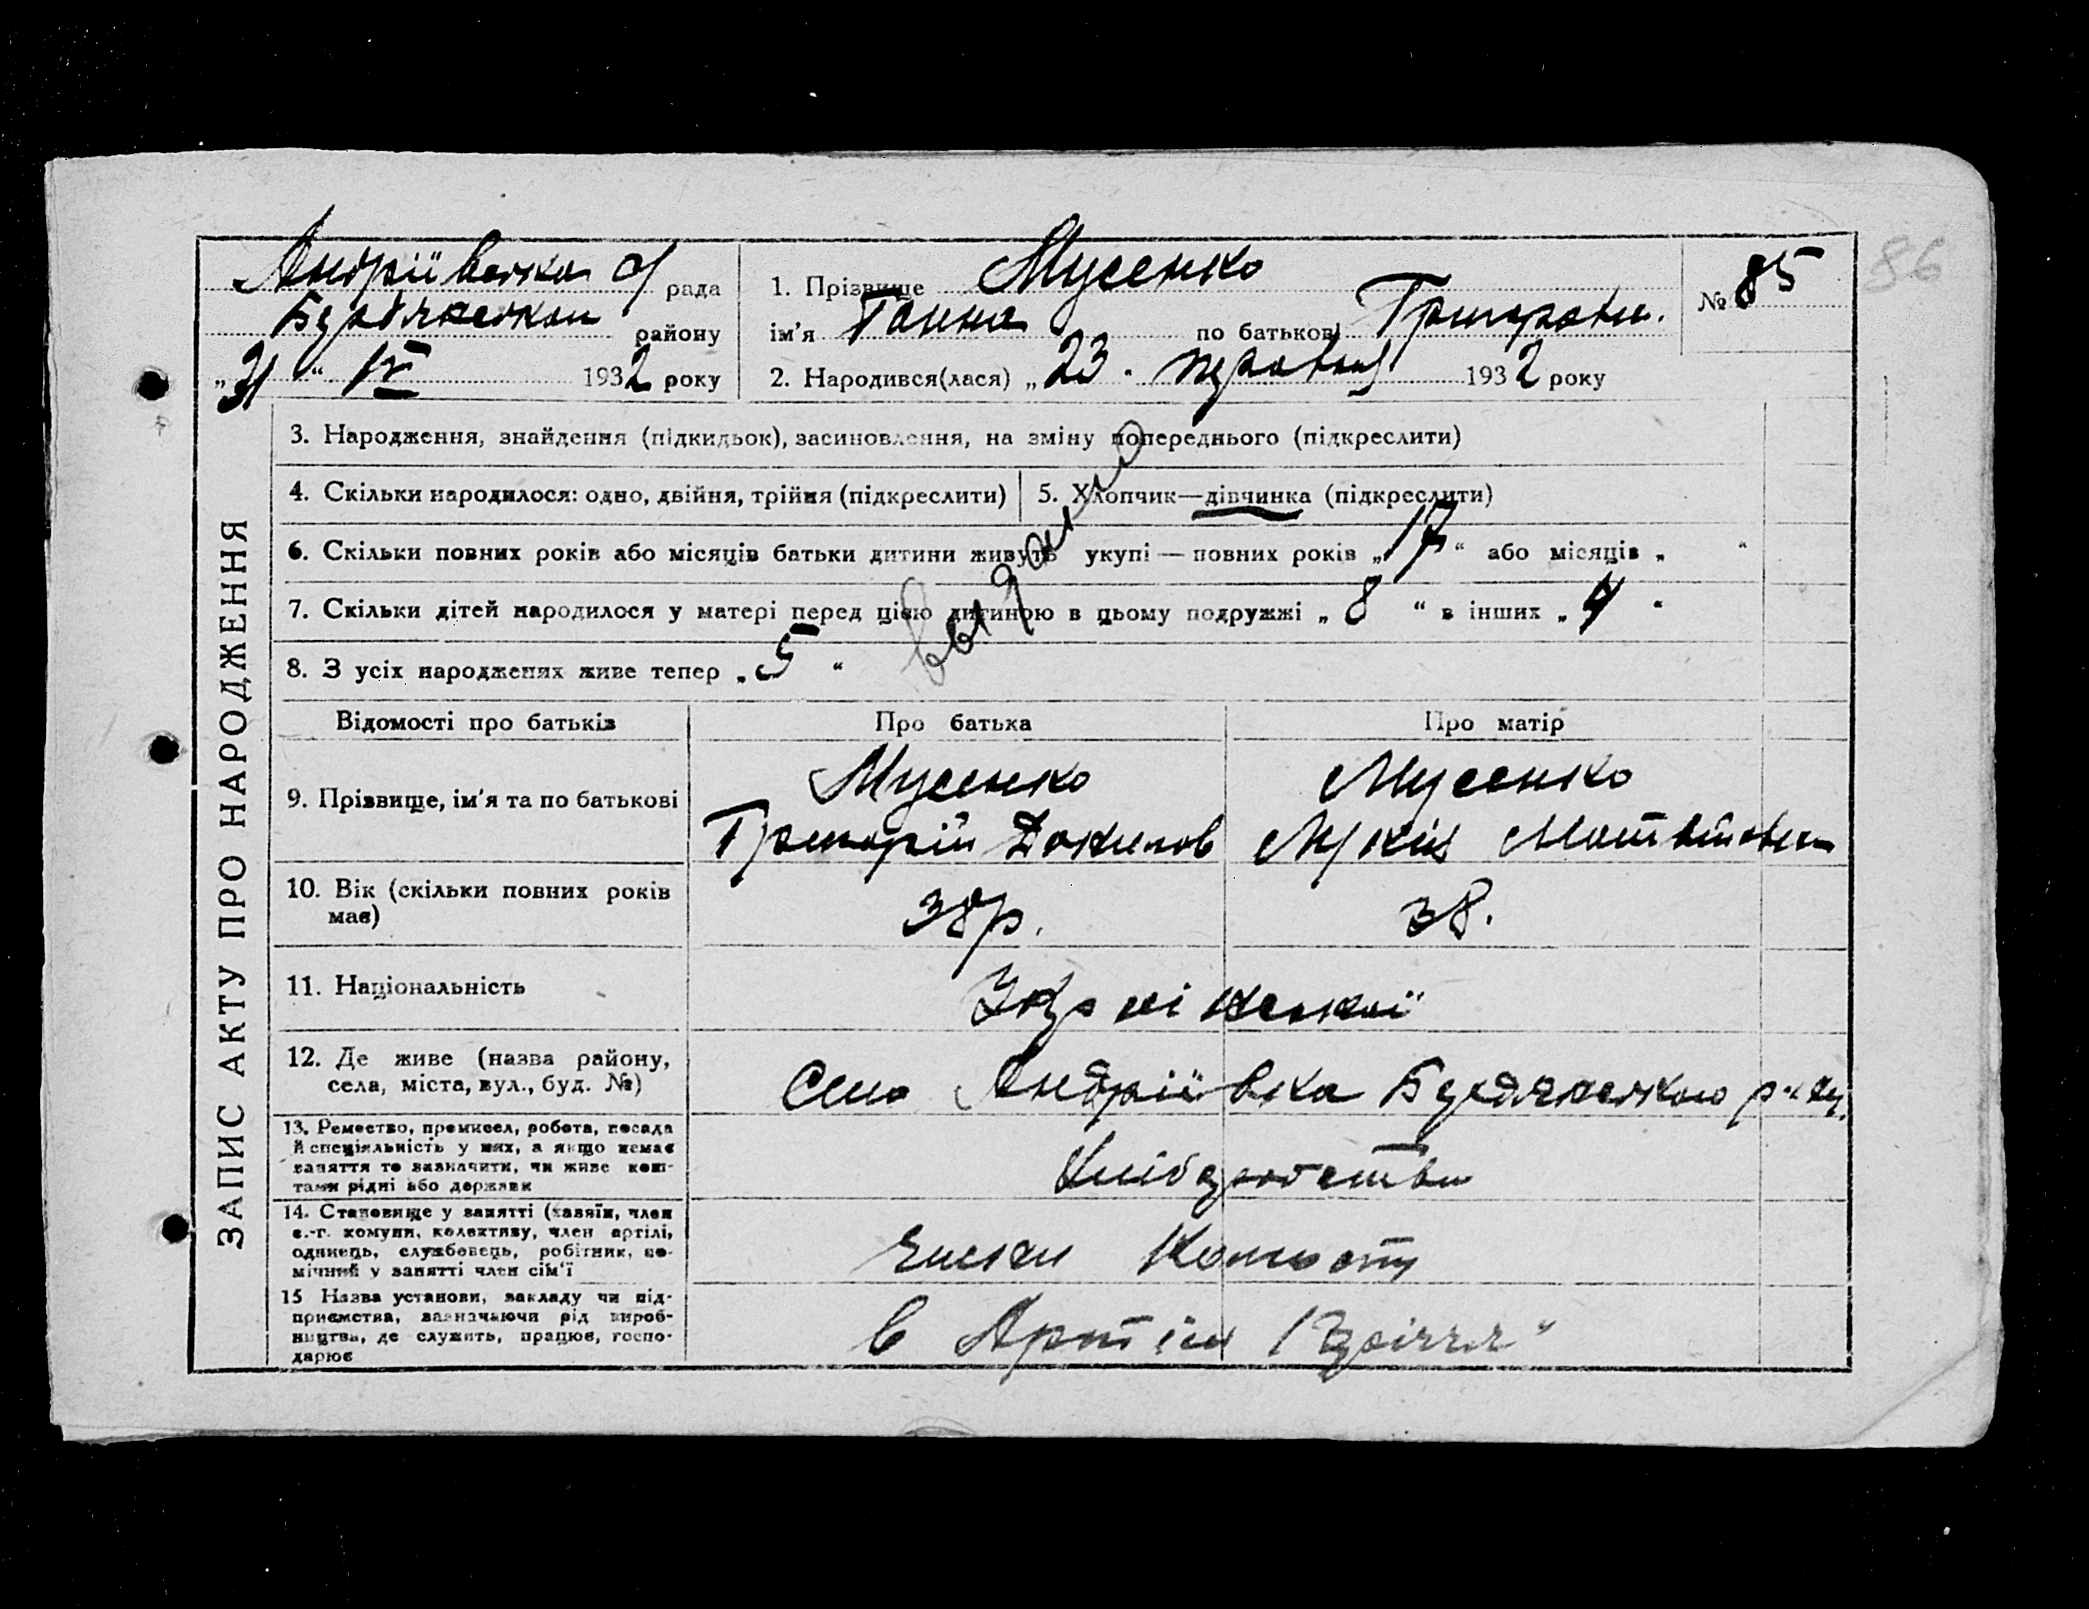 86
Андріївська с/рада
Бердянськои району
№ 85
1. Прізвище Мусенко
ім'я Ганна по батькові Григоровн.
„31“ IV 1932 року
2. Народився(лася) „23. травня 1932 року
ЗАПИС АКТУ ПРО НАРОДЖЕННЯ
3. Народження, знайдення (підкидьок), засиновлення, на зміну попереднього (підкреслити)
4. Скільки народилося: одно, двійня, трійня (підкреслити) 5. Хлопчик—дівчинка (підкреслити)
6. Скільки повних років або місяців батьки дитини живуть укупі — повних років „17“ або місяців „ “
7. Скільки дітей народилося у матері перед цією дитиною в цьому подружжі „8“ в інших „ “
8. З усіх народжених живе тепер „5“
выдано
Відомості про батьків Про батька Про матір
9. Прізвище, ім'я та по батькові
Мусенко
Григорій
Мусенко
10. Вік (скільки повних років має)
38р.
38.
11. Національність
Української
12. Де живе (назва району,
села, міста, вул., буд. №)
Село Андріївка Бердянського р-ну.
13. Ремество, промисел, робота, посада
й спеціяльність у них, а якщо немає
заняття то зазначити, чи живе кош-
тами рідні або держави
Хліборобство
14. Становище у занятті (хазяїн, член
с.-г. комуни, колективу, член артілі,
одинець, службовець, робітник, по-
мічний у занятті член сім'ї
Члени Колгоспу
15 Назва установи, закладу чи під-
приємства, зазначаючи рід вироб-
ництва, де служить, працює, госпо-
дарює
в Артіли